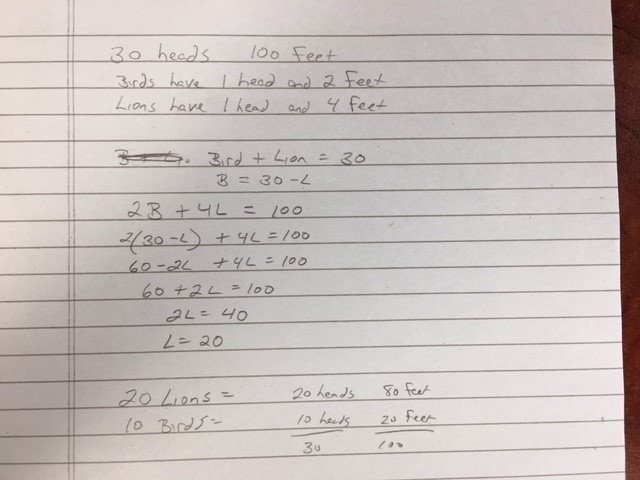 30 heads 100 feet
Birds have 1 head and 2 feet
Lions have 1 head and 4 feet
Bird + Lion = 30
B = 30 - L
2B + 4L = 100
2(30 - L) + 4L = 100
60 - 2L + 4L = 100
60 + 2L = 100
2L = 40
L = 20
20 Lions = 20 heads 80 feet
10 Birds = 10 heads 20 feet
30 100